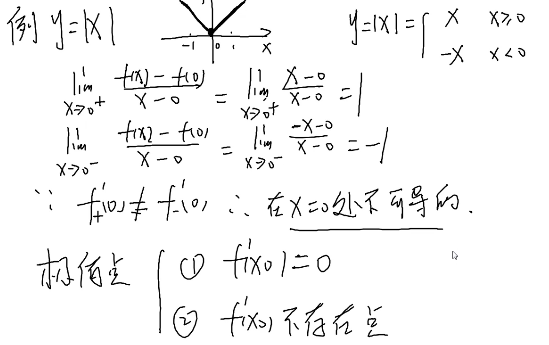 例 y=|x|
-1 0 1 x
y=|x|={ x x≥0
-x x<0
lim x→0⁺ f(x)-f(0)/x-0 = lim x→0⁺ x-0/x-0 = 1
lim x→0⁻ f(x)-f(0)/x-0 = lim x→0⁻ -x-0/x-0 = -1
∵ f'₊(0) ≠ f'₋(0) ∴ 在x=0处不可导的.
极值点 { ① f'(x₀)=0
② f'(x₀)不存在点